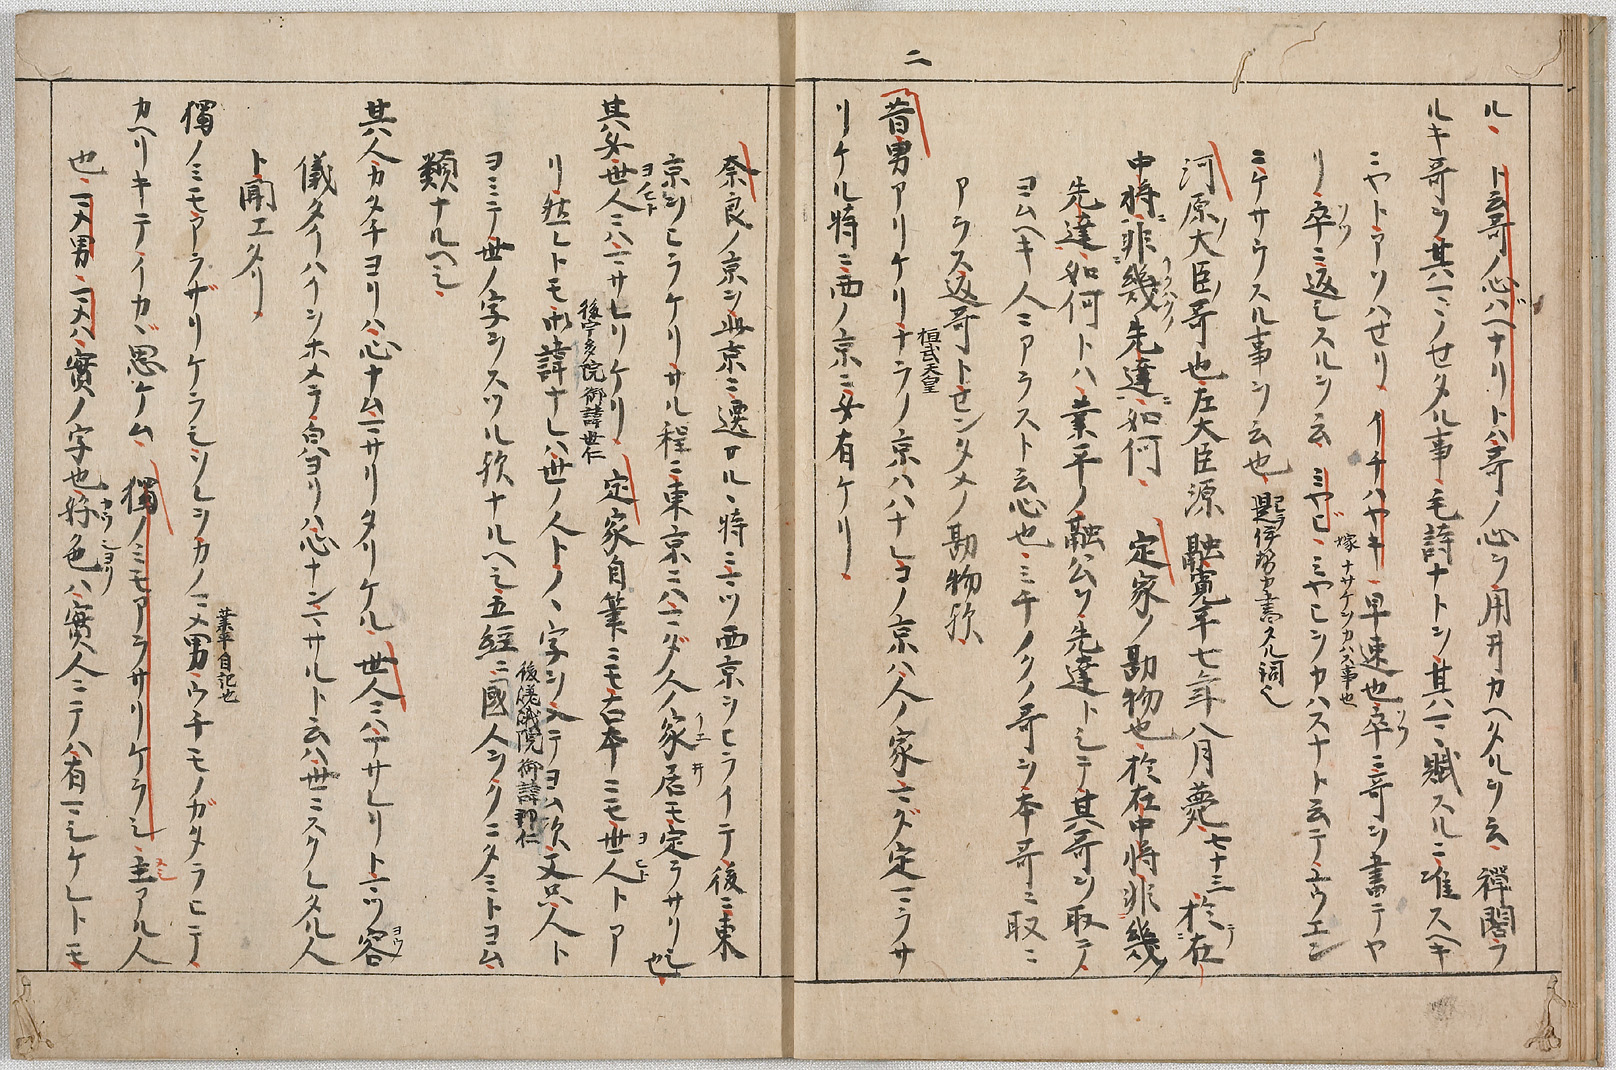 ル、ト云哥ノ心バヘナリトハ哥ノ心ヲ用井カヘタルヲ云、禅閤ヲ
ルキ哥ヲ其一ニノせタル事、毛詩ナトヲ其八一ニ賦スルニ准スヘキ
ニヤトアソハせリ、イチハヤキ、早速也、卒ニ哥ヲ書テヤ
リ、卒ニ返シスルヲ云、ミヤビ、ミヤヒヲカハスナト云テユウエン
嫁 ナサケヲカハス事也
ニケサウスル事ヲ云也
河原大臣ノ哥也、左大臣源融寛平七年八月薨七十三、於在
中将非幾先達、如何、定家ノ勘物也、於在中将非幾
先達如何トハ、業平ノ融公ヲ先達トシテ其哥ヲ取テ、
ヨムヘキ人ニアラスト云心也、ミチノクノ哥ヲ本哥ニ取ニ
アラス返哥トせンタメノ勘物歟、
二
昔男アリケリナラノ京ハハナレコノ京ハ人ノ家マダ定マラサ
桓武天皇
リケル時ニ西ノ京ニ女有ケリ、
奈良ノ京ヲ此京ニ遷サルヽ時ミマツ西京ヲヒライテ後ニ東
京ヲヒラケリ、サル程ニ東京ニハマダ人ノ家居モ定ラサリシ也
其女世人ニハマサレリケリ、定家自筆ニモ古本ニモ世人トア
後宇多院御諱世仁
リ、然レトモ御諱ナレハ世ノ人トノヽ字ヲ入テヨム次、文只人ト
後嵯峨院御諱邦仁
ヨミテ世ノ字ヲスツル歟ナルヘシ、五経ニ國人ヲクニタミトヨム
類ナルヘシ、
其人カタチヨリハ心ナムマサリタリケル、世人ニハマサレリトマツ容
儀タイハイヲホメテ皃ヨリハ心ナンマサルト云ハ、世ニスクレタル人
ト聞エタリ、
獨ノミモアラザリケラシソレヲカノマメ男ウチモノガタラヒテ、
業平自記也
カヘリキテイカヾ思ケム、獨ノミモアラサリケラシ、主アル人
也、マメ男、マメハ、實ノ字也、好色ハ實人ニテハ有マシケレトモ